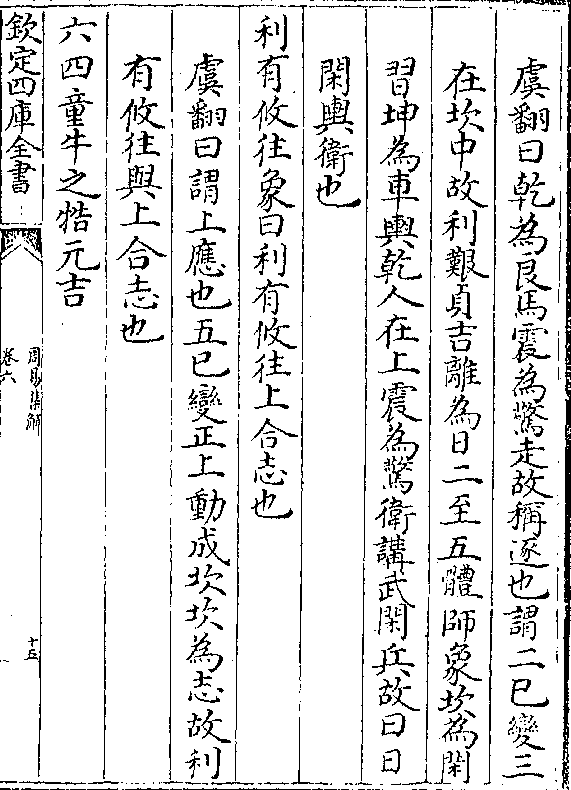 虞翻曰乾為良馬震為驚走故稱逐也謂二已變三
在坎中故利艱貞吉離為日二至五體師象坎為閑
習坤為車輿乾人在上震為驚衛講武閑兵故曰日
閑輿衛也
利有攸往象曰利有攸往上合志也
虞翻曰謂上應也五已變正上動成坎坎為志故利
有攸往與上合志也
六四童牛之牿元吉
欽定四庫全書
周易集解
卷六
十五